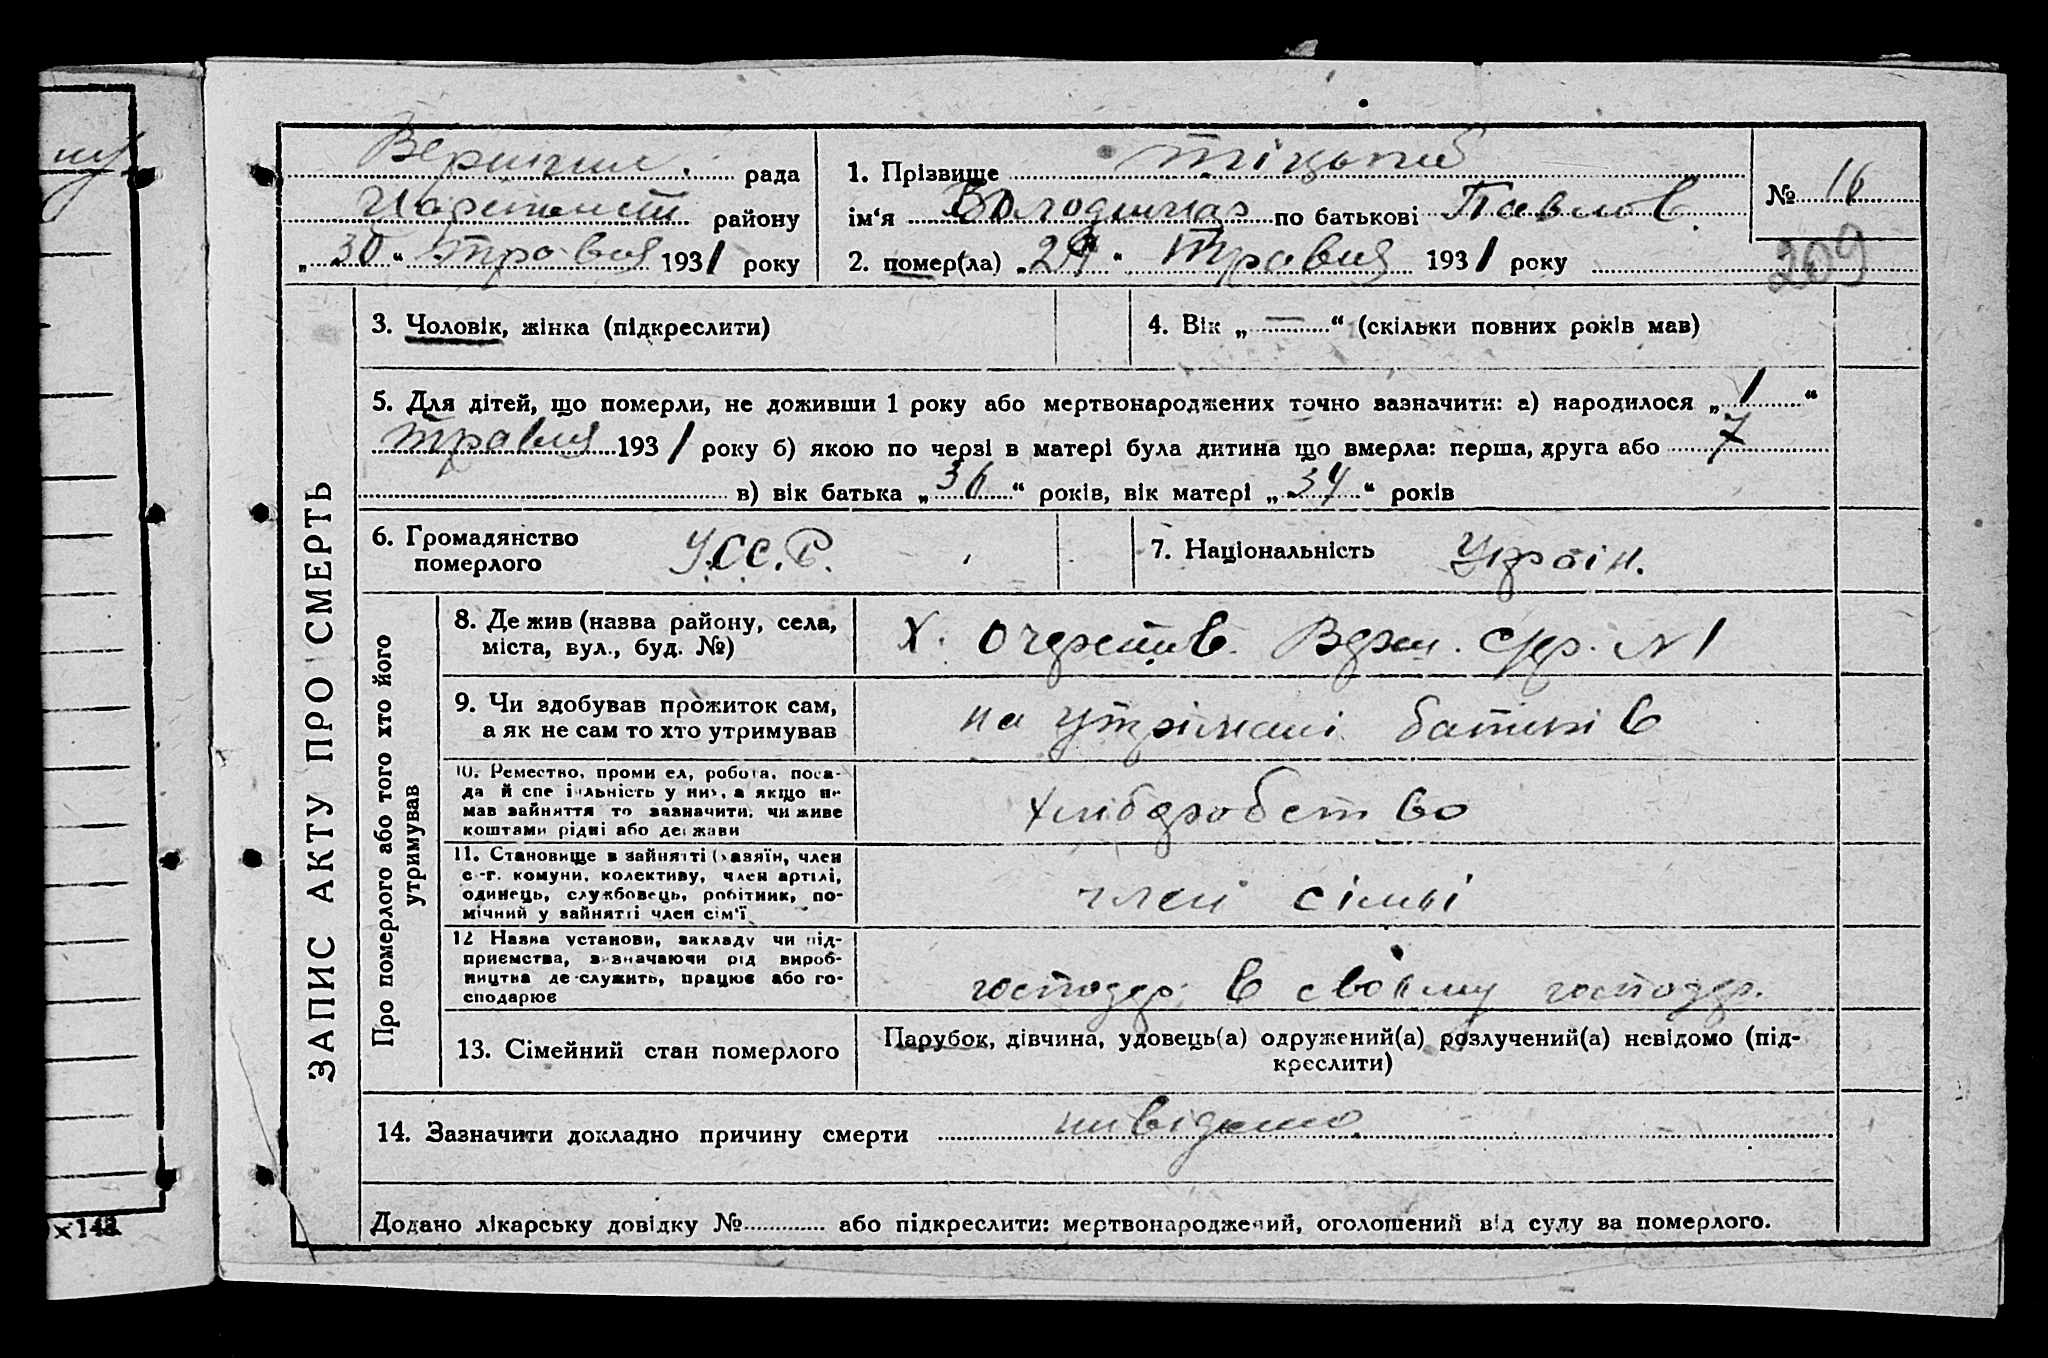 рада
району
„ 30 “ травня 1931 року
1. Прізвище
ім‘я Володимир по батькові Павлов.
2. помер(ла) „ 29 “ травня 1931 року
№ 16
209
ЗАПИС АКТУ ПРО СМЕРТЬ
3. Чоловік, жінка (підкреслити)
4. Вік „ — “ (скільки повних років мав)
5. Для дітей, що померли, не доживши 1 року або мертвонароджених точно зазначити: а) народилося „ 1 “
травня 1931 року б) якою по черзі в матері була дитина що вмерла: перша, друга або 7
в) вік батька „ 36 “ років, вік матері „ 34 “ років
6. Громадянство
померлого
У.С.С.Р.
7. Національність Україн.
Про померлого або того хто його
утримував
8. Де жив (назва району, села,
міста, вул., буд. №)
х. № 1
9. Чи здобував прожиток сам,
а як не сам то хто утримував
на утрімані батьків
10. Ремество, промисел, робота, поса-
да й спеціяльність у них, а якщо не
мав зайняття то зазначити, чи живе
коштами рідні або держави
хліборобство
11. Становище в зайнятті (хазяїн, член
с.-г. комуни, колективу, член артілі,
одинець, службовець, робітник, по-
мічний у зайнятті член сім‘ї
член сімьі
12 Назва установи, закладу чи під-
приємства, визначаючи рід вироб-
ництва де-служить, працює або го-
сподарює
господар. в своїму господар.
13. Сімейний стан померлого
Парубок, дівчина, удовець(а) одружений(а) розлучений(а) невідомо (під-
креслити)
14. Зазначити докладно причину смерти невідомо
Додано лікарську довідку № або підкреслити: мертвонароджений, оголошений від суду за померлого.
×148